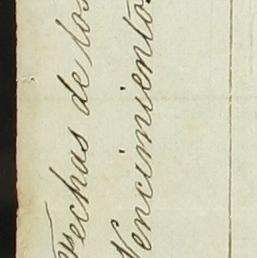 Fechas de los
Vencimientos